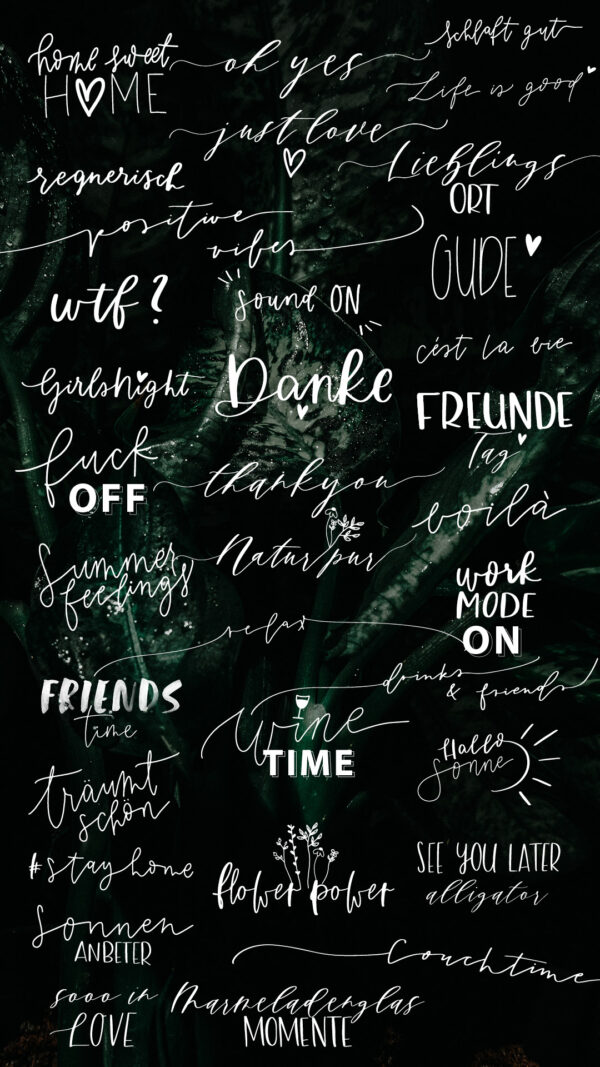 home sweet
HOME
oh yes
schlaft gut
Life is good
just love
regnerisch
Lieblings
ORT
positive
vibes
GUDE
wtf?
sound ON
c'est la vie
GirlsNight
Danke
FREUNDE
Tag
fuck
OFF
thankyou
voilà
Summer
feelings
Natur pur
work
MODE
ON
relax
FRIENDS
time
drinks
& friends
wine
TIME
Hallo
Sonne
träumt
schön
#stayhome
flower power
SEE YOU LATER
alligator
Sonnen
ANBETER
Couchtime
sooo in
LOVE
Marmeladenglas
MOMENTE